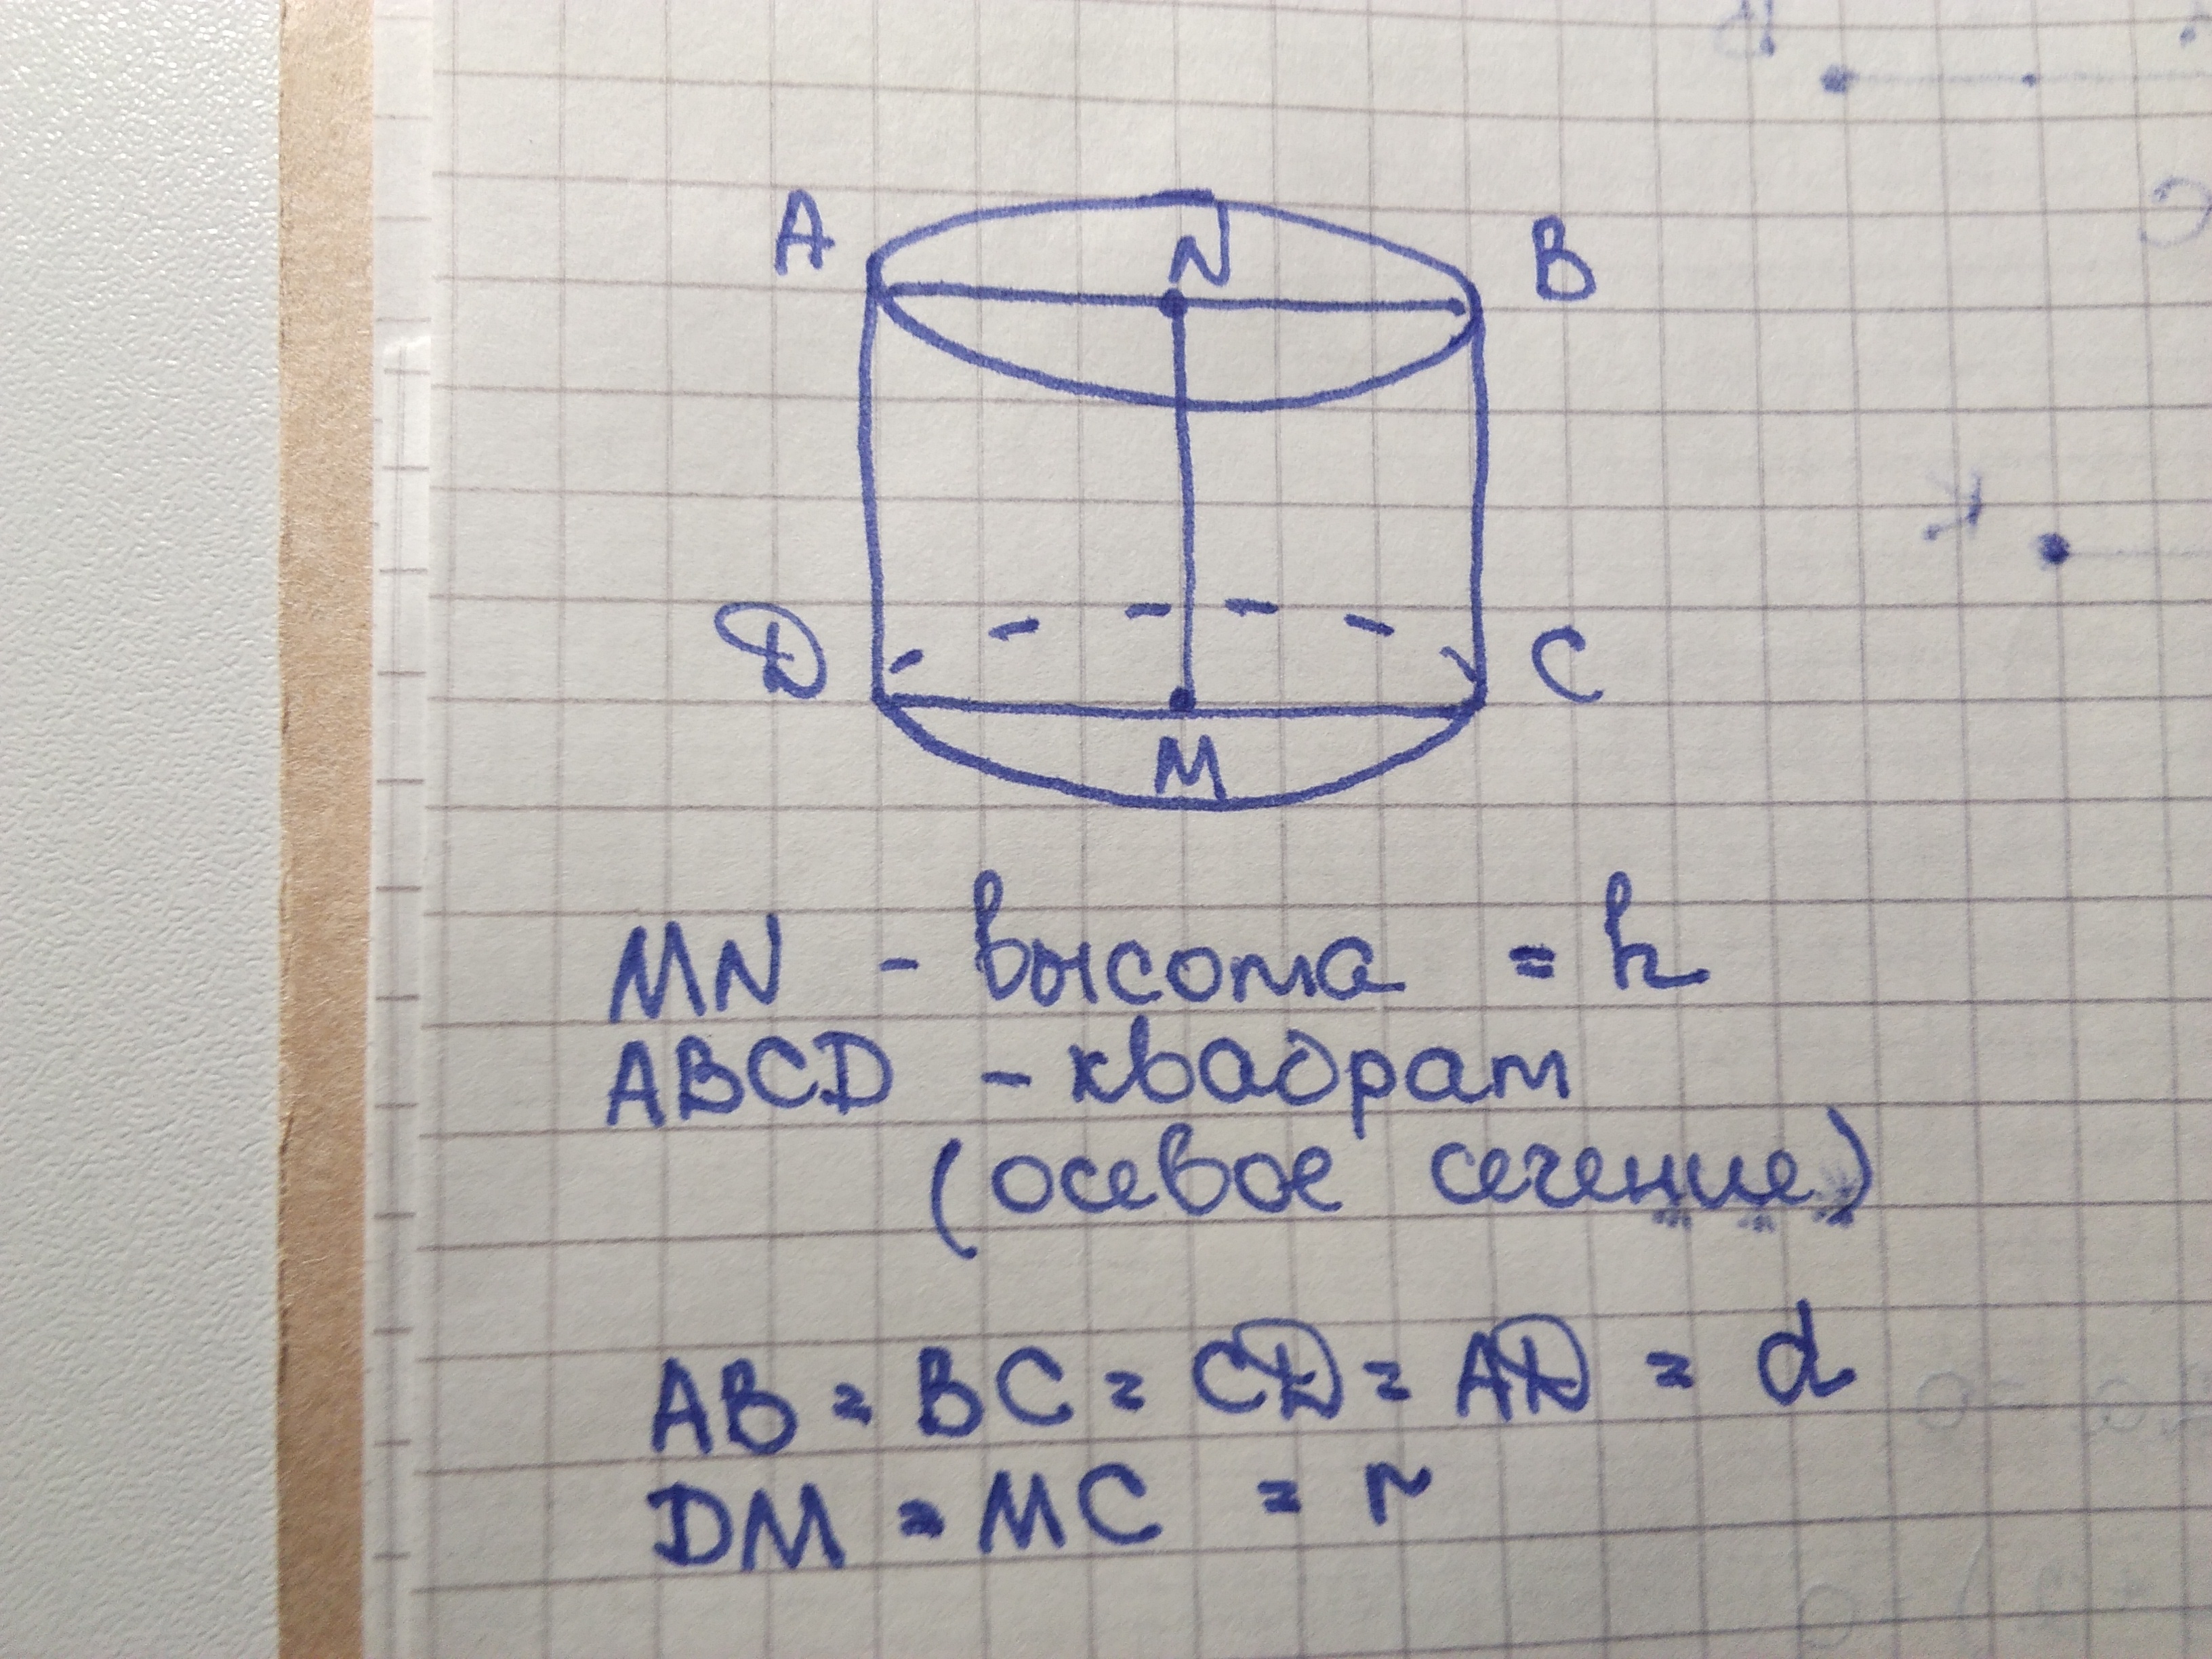 A
N
B
D
C
M
MN - высота = h
ABCD - квадрат
(осевое сечение)
AB = BC = CD = AD = d
DM = MC = r